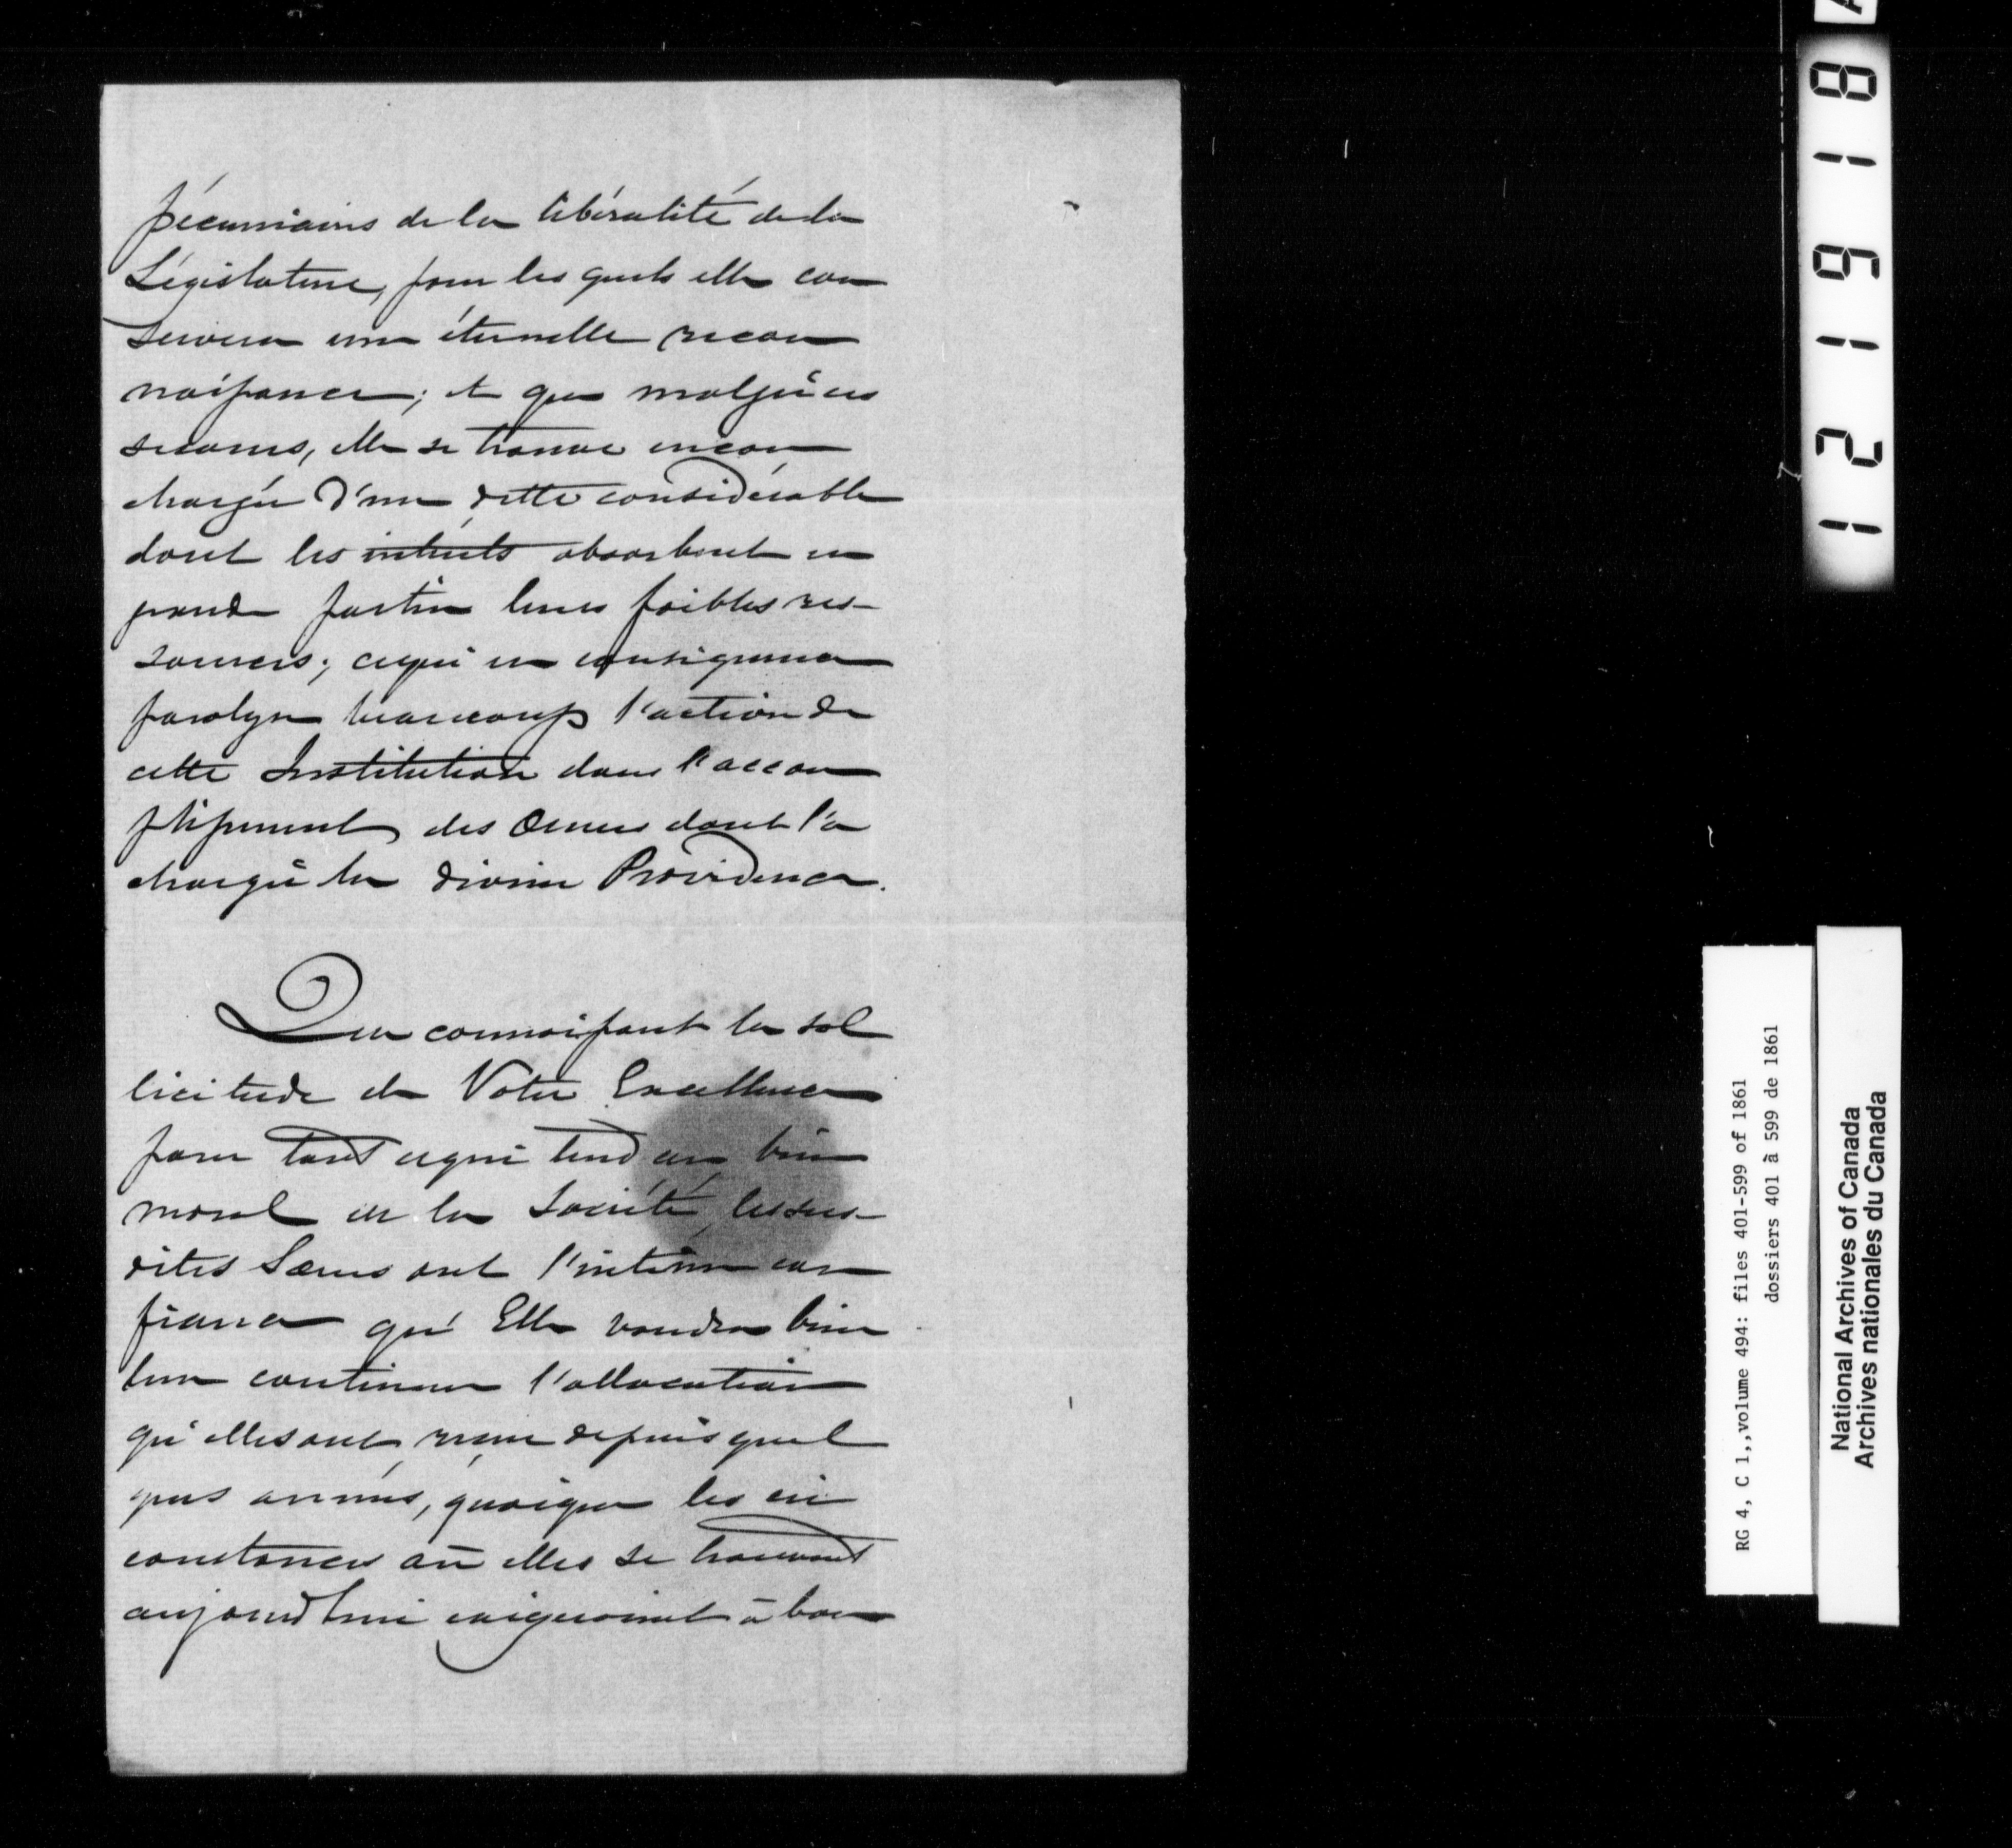 pécuniaires de la libéralité de la
Législature, pour les quels elle con
servera une éternelle recon
naissance; et que malgré ces
secours, elle se trouve encore
chargée d'une dette considérable
dont les intérêts absorbent en
grande partie leurs foibles res-
sources; ce qui en conséquence
paralyse beaucoup l'action de
cette Institution dans l'accom
plissement des Œuvres dont l'a
chargée la divine Providence.
Que connoissant la sol
licitude de Votre Excellence
pour tout ce qui tend au bien
moral de la Société, les sus-
dites Sœurs ont l'intime con
fiance qu'Elle voudra bien
leur continuer l'allocation
qu'elles ont reçue depuis quel
ques années, quoique les cir
constances où elles se trouvent
aujourd'hui exigeroient à bon
12 19 18
RG 4, C 1,,volume 494: files 401-599 of 1861
dossiers 401 à 599 de 1861
National Archives of Canada
Archives nationales du Canada